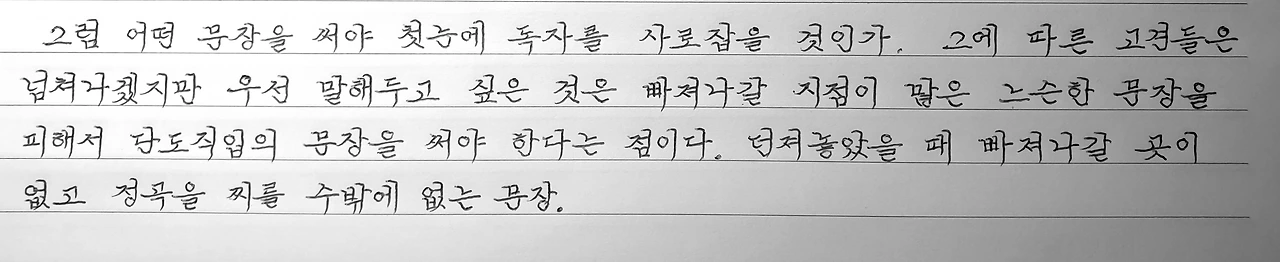 그럼 어떤 문장을 써야 첫눈에 독자를 사로잡을 것인가. 그에 따른 고견들은
넘쳐나겠지만 우선 말해두고 싶은 것은 빠져나갈 지점이 많은 느슨한 문장을
피해서 단도직입의 문장을 써야 한다는 점이다. 던져놓았을 때 빠져나갈 곳이
없고 정곡을 찌를 수밖에 없는 문장.